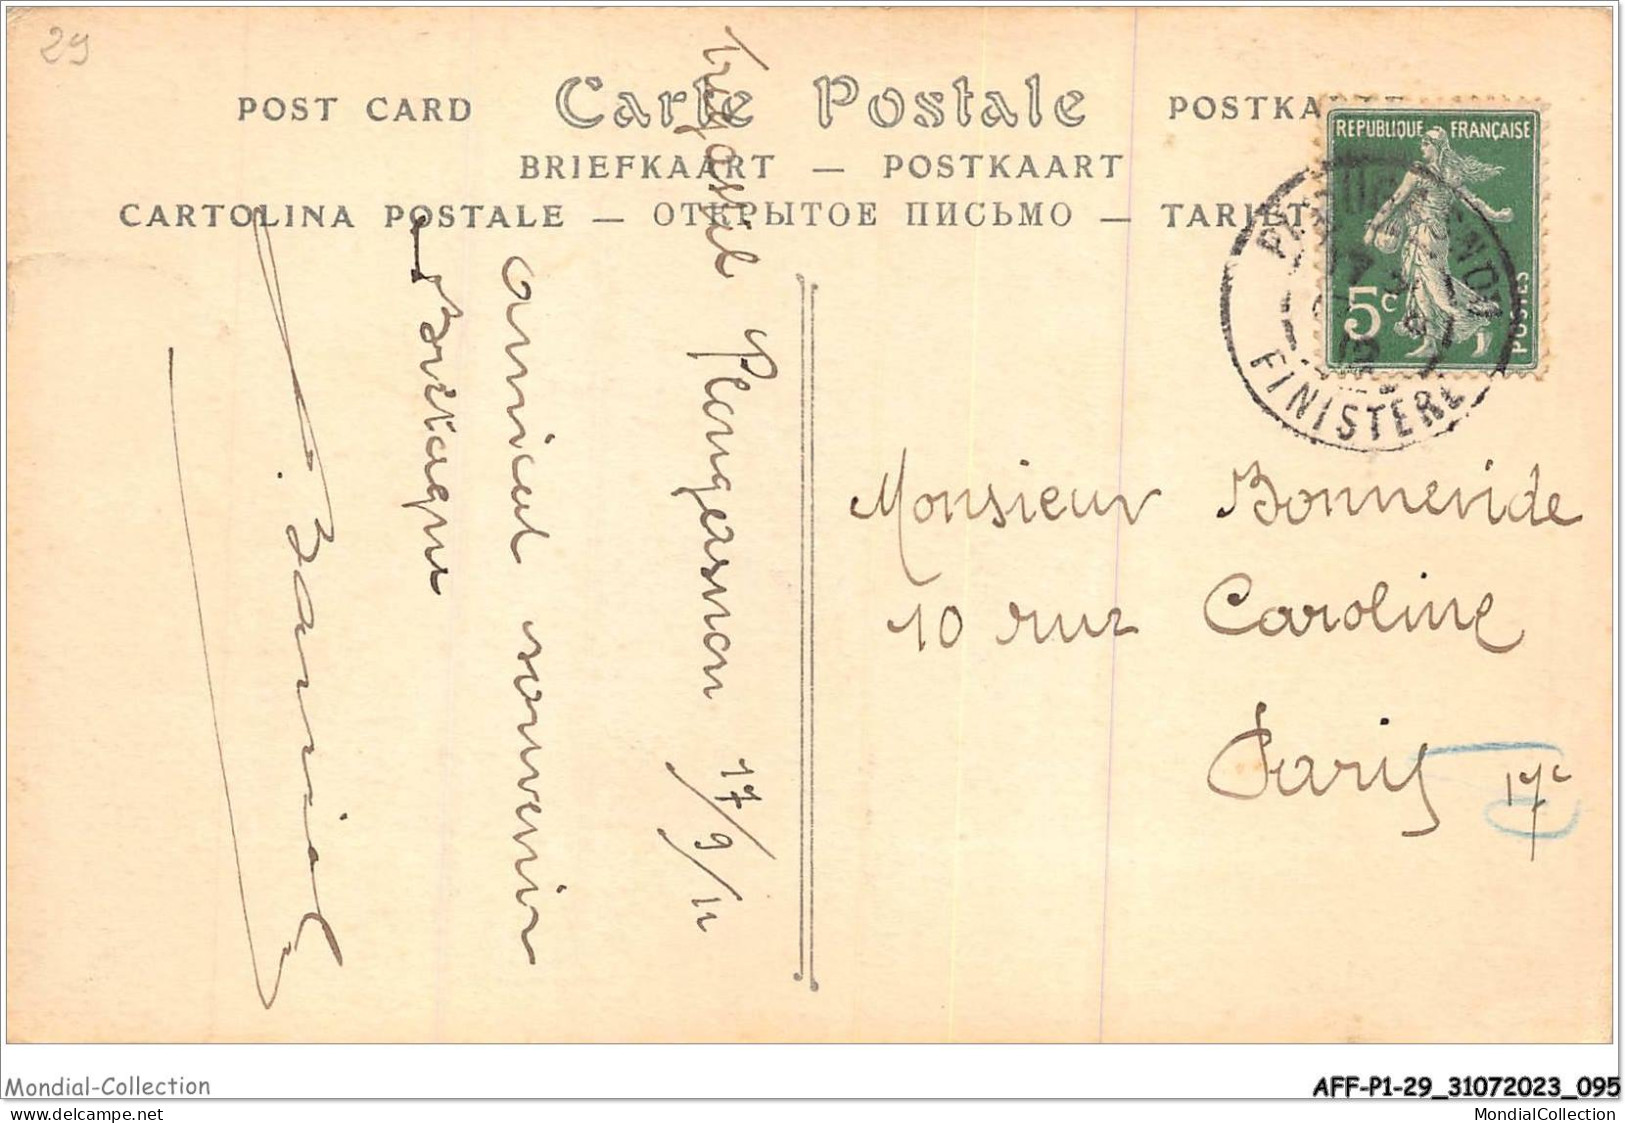 29
POST CARD Carte Postale POSTKA
BRIEFKAART — POSTKAART
CARTOLINA POSTALE — ОТКРЫТОЕ ПИСЬМО — TARJET
REPUBLIQUE FRANÇAISE
5c
POSTES
FINISTERE
Plougasnou 17/9/11
amical souvenir
Bretagne
Monsieur Bonnevide
10 rue Caroline
Paris 17e
Mondial-Collection
delcampe.net
AFF-P1-29_31072023_095
MondialCollection